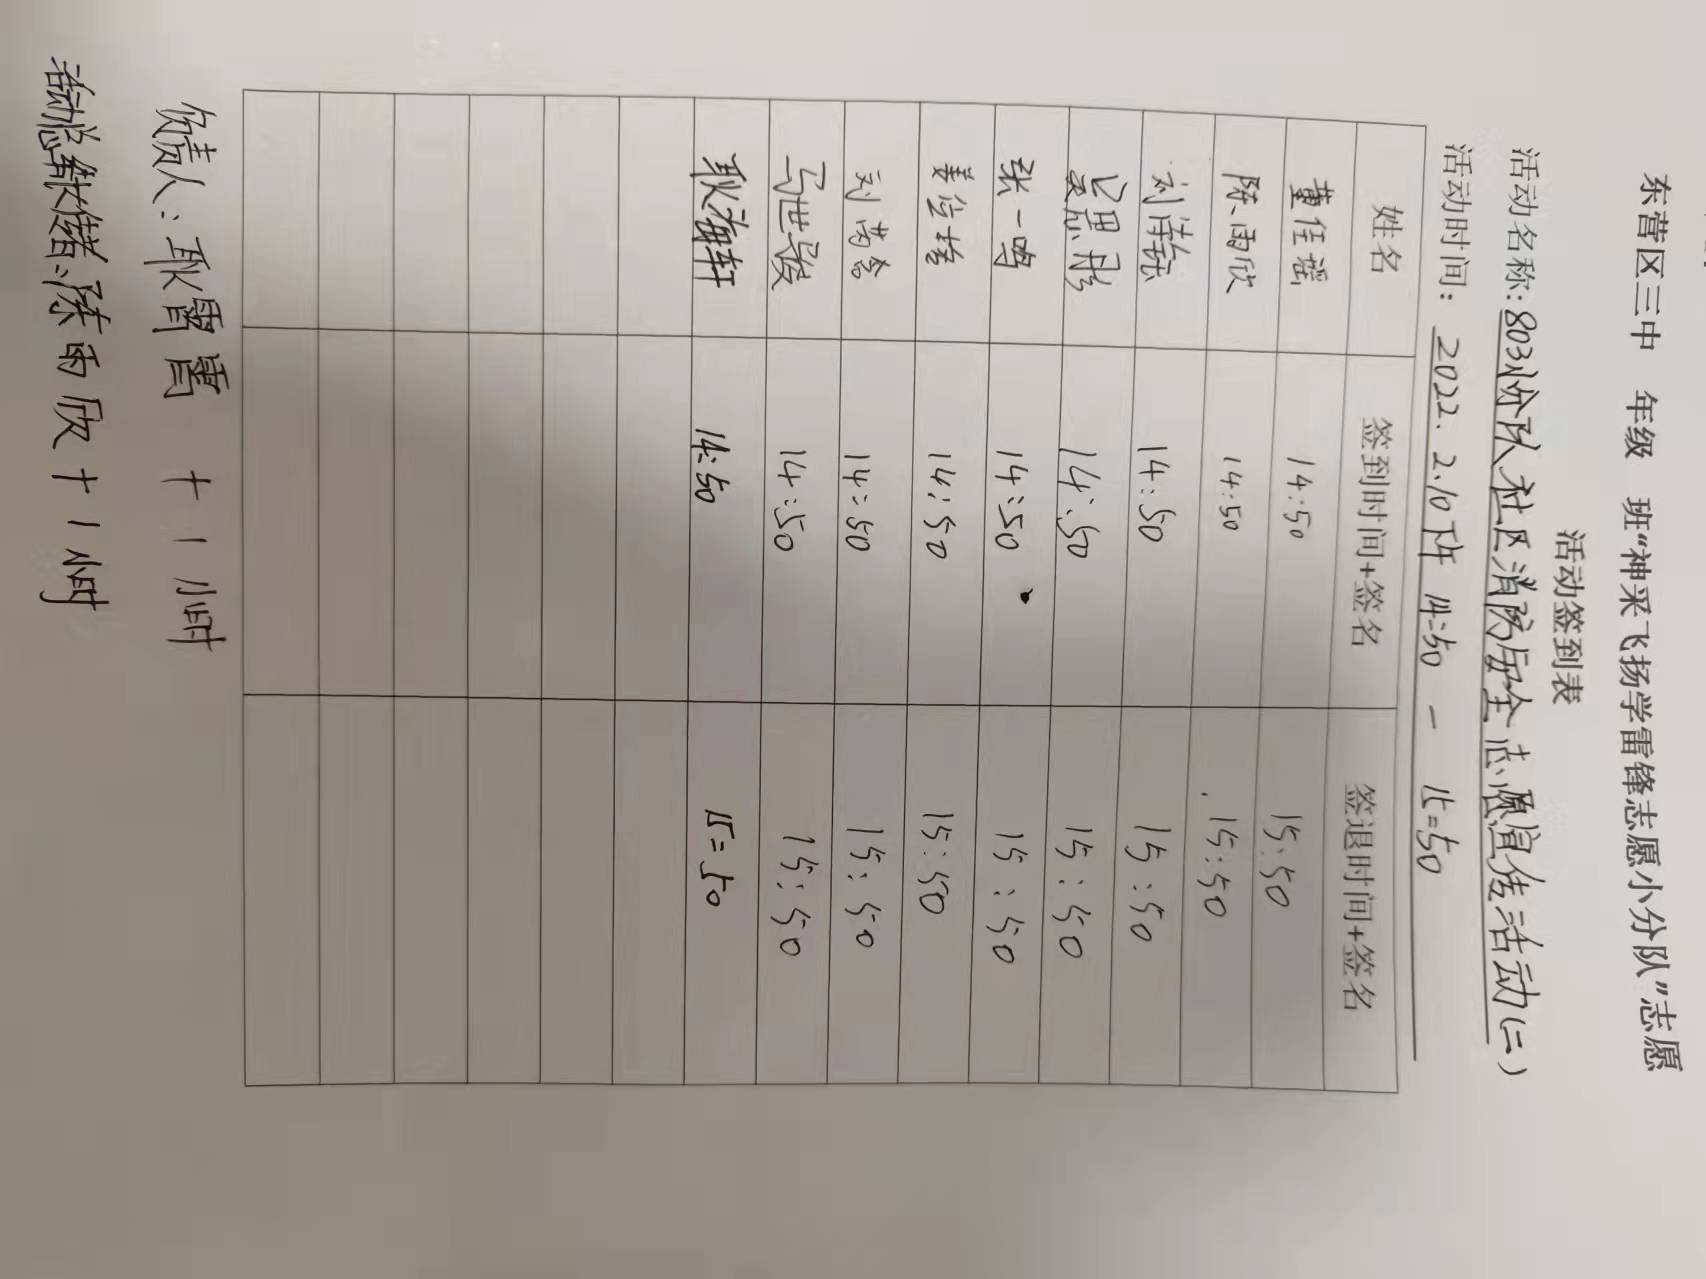 东营区三中 年级 班“神采飞扬学雷锋志愿小分队”志愿
活动签到表
活动名称:803小分队社区消防安全志愿宣传活动(二)
活动时间: 2022.2.10下午 14:50 — 15:50
姓名 签到时间+签名 签退时间+签名
董佳瑶 14:50 15:50
陈雨欣 14:50 15:50
刘 14:50 15:50
思彤 14:50 15:50
张一鸣 14:50 15:50
姜 14:50 15:50
刘 14:50 15:50
马世骏 14:50 15:50
耿海轩 14:50 15:50
负责人:耿 十1小时
活动总撰稿:陈雨欣十1小时